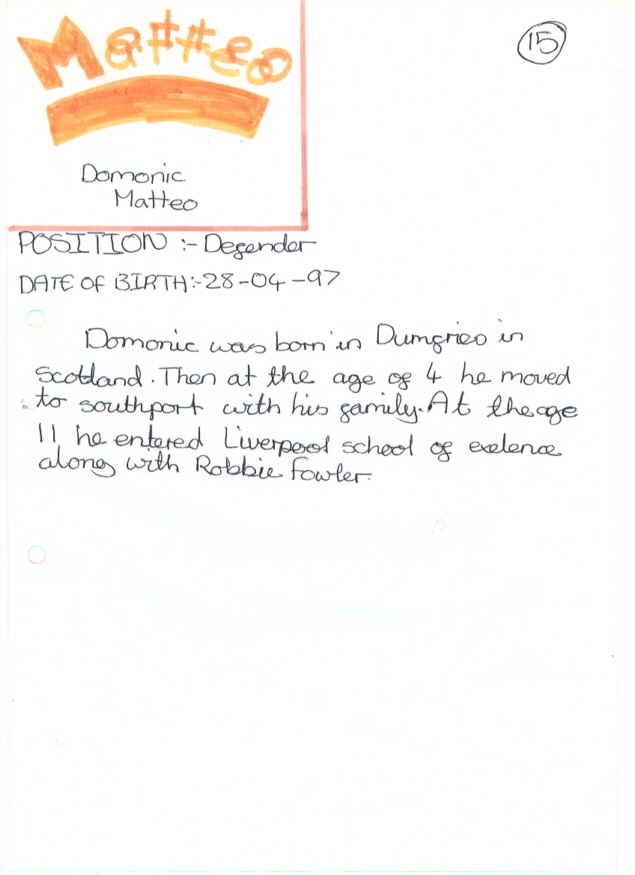 Matteo
15
Domonic
Matteo
POSITION :- Defender
DATE OF BIRTH:-28-04-97
Domonic was born in Dumfries in
Scotland. Then at the age of 4 he moved
to southport with his family. At the age
11 he entered Liverpool school of exelence
along with Robbie Fowler.